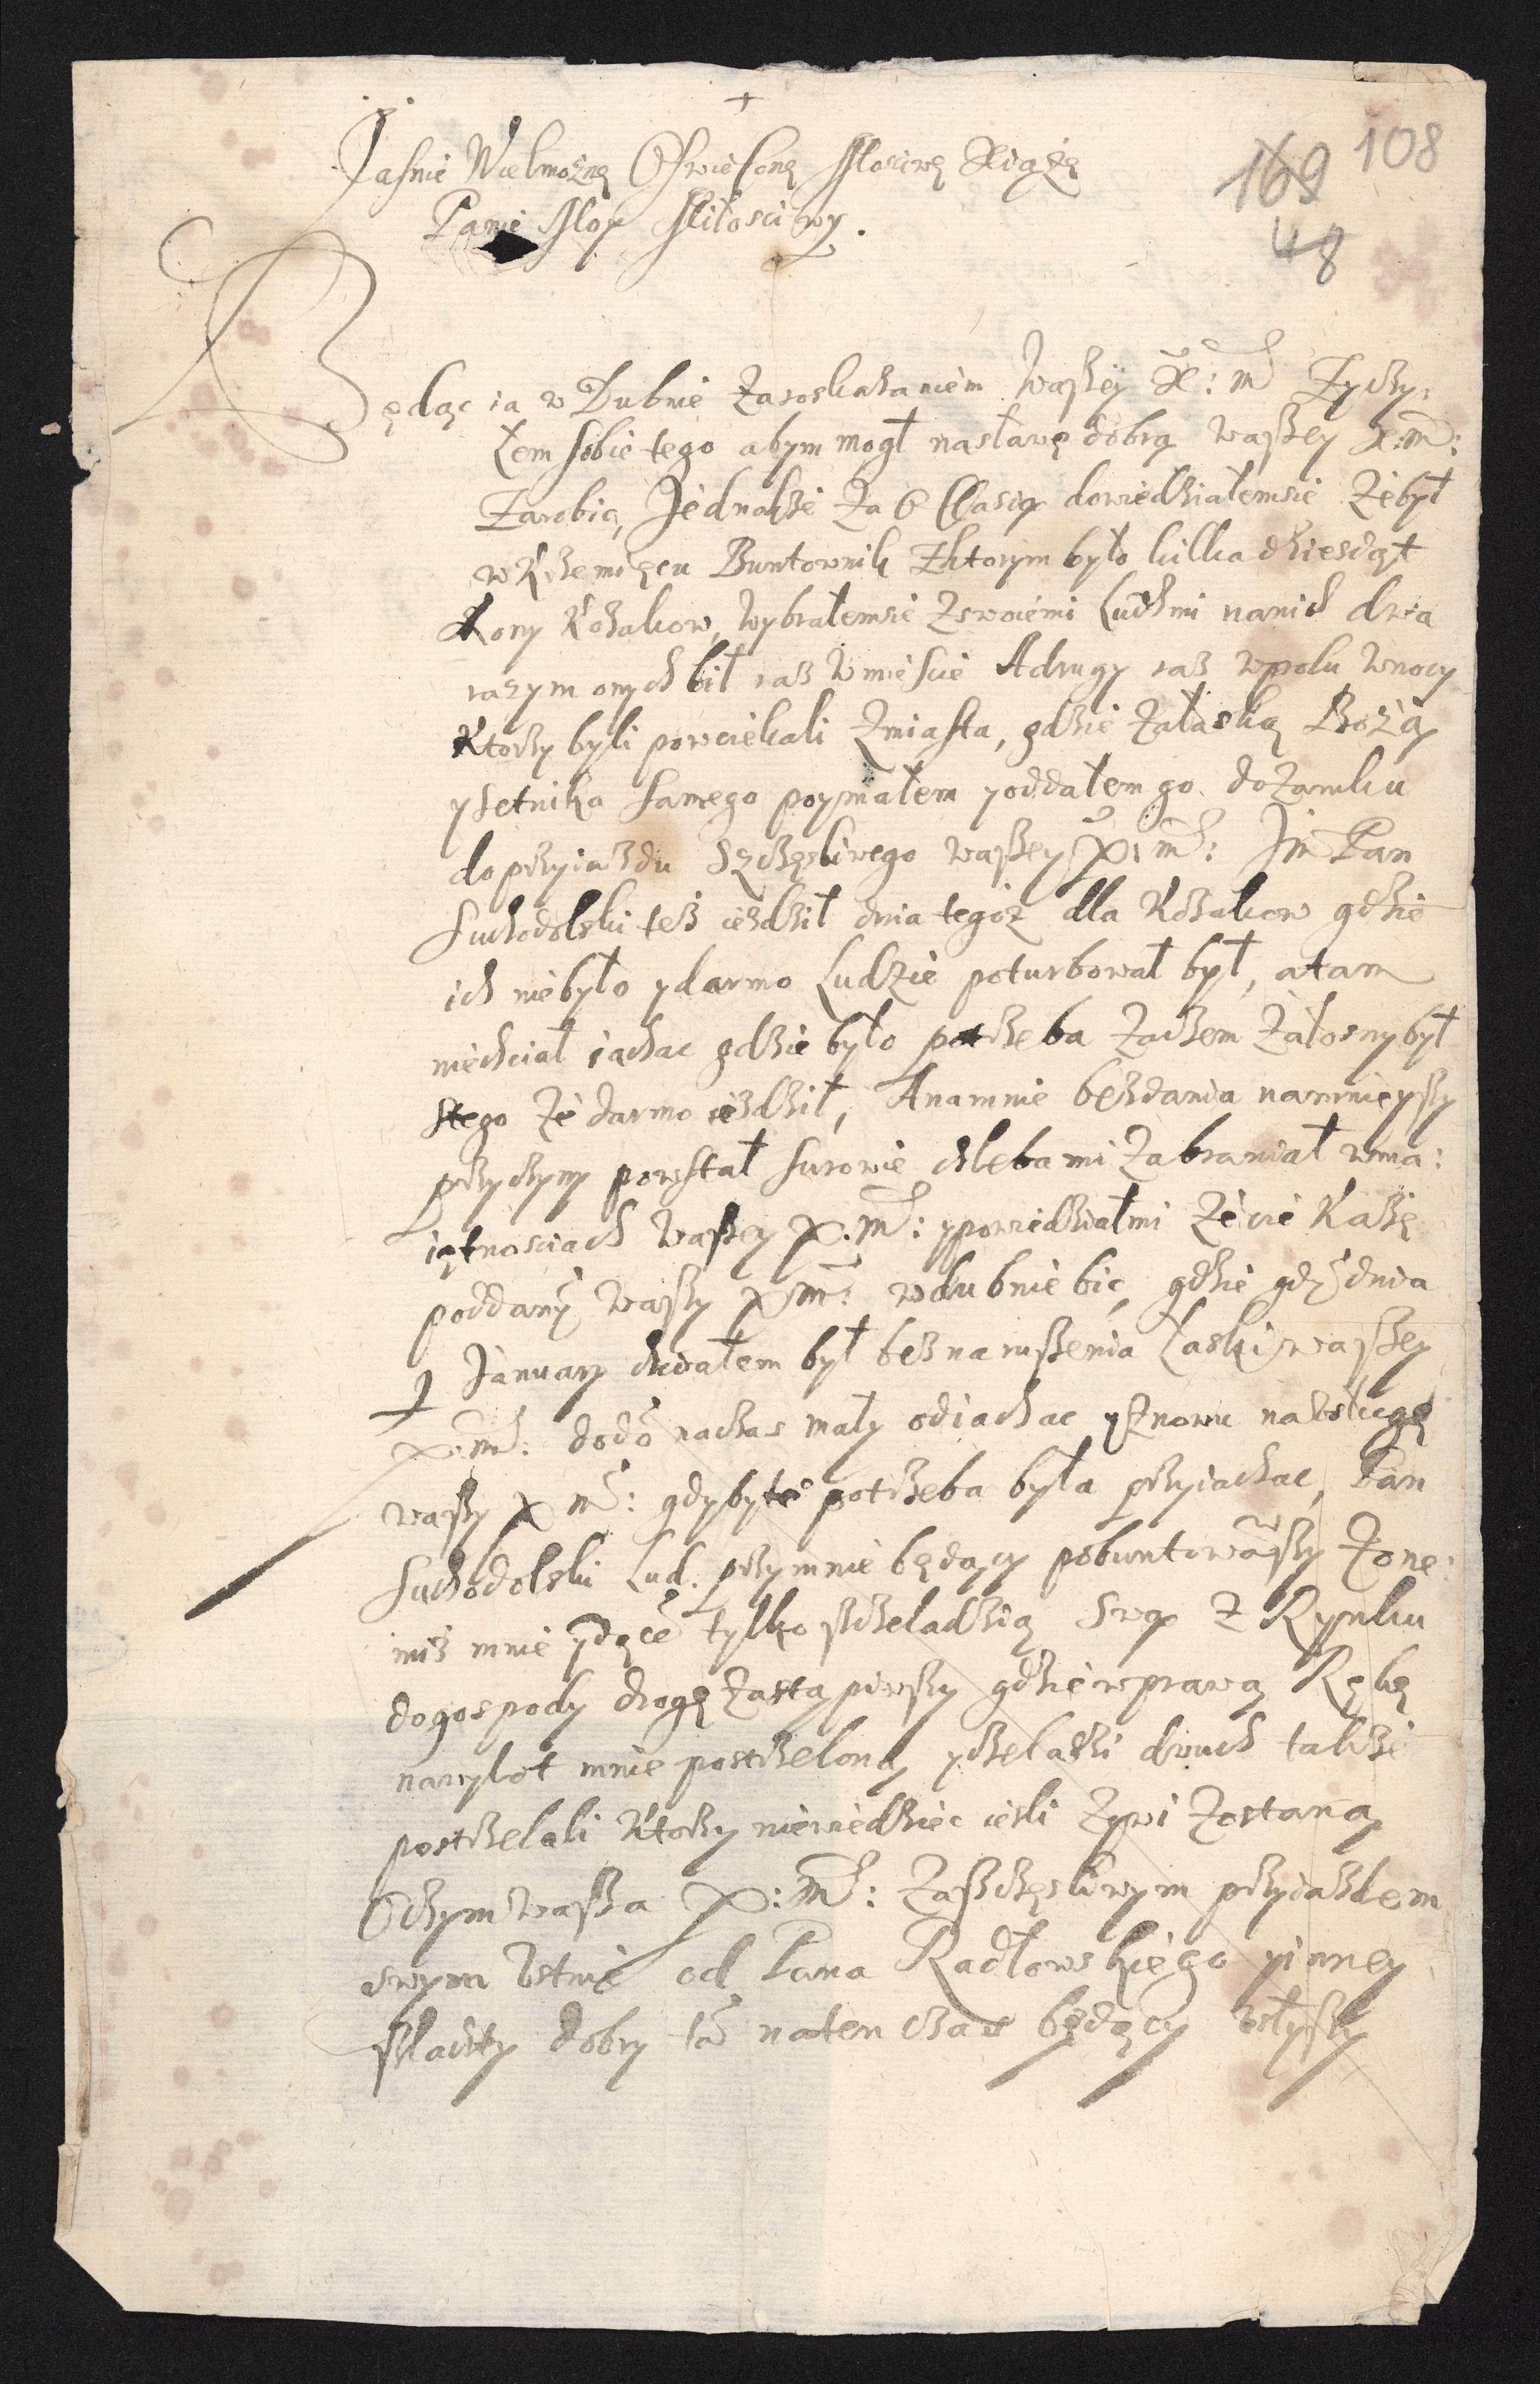 +
Jaśnie Wielmożne Oswiecone Mosciwe Xiążę
Panie Moy Miłosciwy.
108
169
48
Będąc ia w Dubnie Zaroskazaniem Waszey X: M Zyczy:
łem sobie tego abym mogł nasławę dobrą waszey X: M:
Zarobic, Jednakże Za dowiedziałemsie Zebył
w Krzemięcu Buntownik Zktorym było kilka dziesciąt
kony Kozakow, wybrałemsie Zswoiemi Ludzmi nanich dwa
razym onych bił raz w miescie A drugy raz wpolu wnocy
Ktorzy byli powciekali Zmiasta, gdzie Załaską Bożą
ysetnika samego poymałem yoddałem go doZamku
do przyiazdu Szczęsliwego waszey X: M: Jm Pan
Suchodolski tesz iezdził dnia tegoż dla Kozakow gdzie
ich niebyło ydarmo Ludzie poturbował był, atam
niechciał iachac gdzie było potrzeba Zaczem Załosny był
stego Ze darmo iezdził, Anamnie bezdania namnieyszy
przyczyny powstał surowie chleba mi Zabraniał wma:
iętnosciach waszey X: M: ypowiedziałmi Ze cie Każę
poddany waszy X M: wdubnie bic, gdzie gdy dnia
9 January chciałem był beznaruszenia Łaski waszey
X: M: dodo naczas mały odiachac yZnowu nabsługę
waszy X M: gdyby potrzeba była przyiachac, Pan
Suchodolski Lud. przymnie będący pobuntowaszy Zone:
miz mnie ydące tylko szczeladzią swą Z Rynku
dogospody drogę Zastąpiwszy gdziewprawą Rękę
nawylot mnie postrzelono yczeladzi dwuch takze
postrzelali Ktorzy niewiedziec iesli Zywi Zostaną
Oczym wasza X: M: Zaszczęsliwym przyiazdem
swym Vstnie od Pana Radłowskiego yinney
szlachty dobry ta naten czas będący vsłyszy